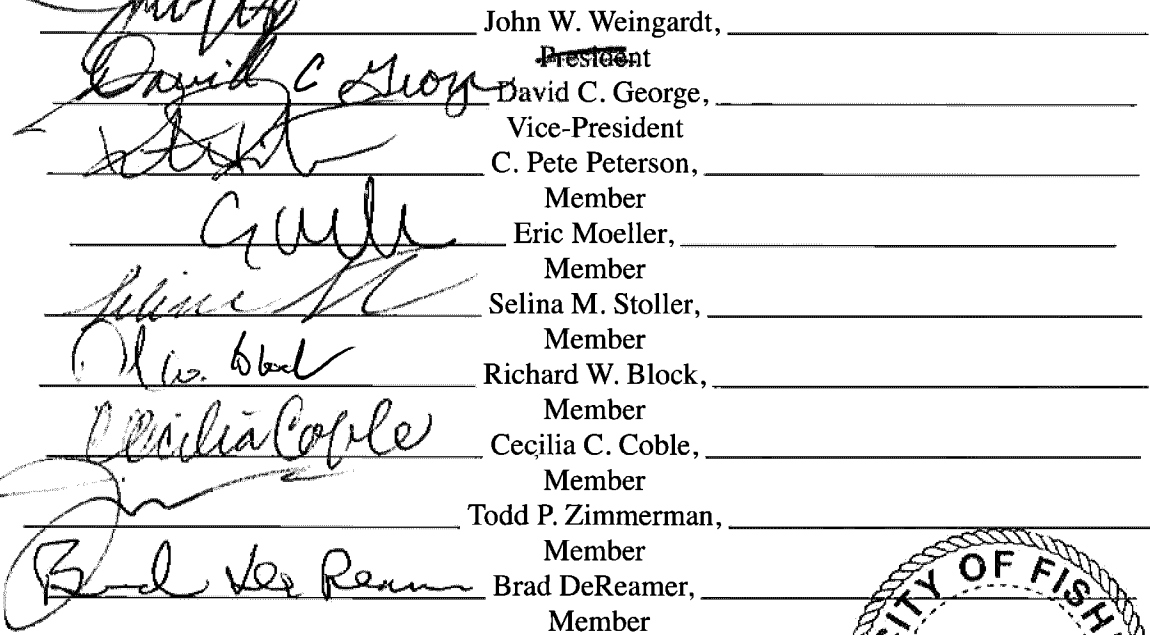 John W. Weingardt,
President
David C George David C. George,
Vice-President
C. Pete Peterson,
Member
Eric Moeller,
Member
Selina M. Stoller,
Member
W. Block Richard W. Block,
Member
Cecilia Coble Cecilia C. Coble,
Member
Todd P. Zimmerman,
Member
Brad DeReamer Brad DeReamer,
Member
CITY OF FISH